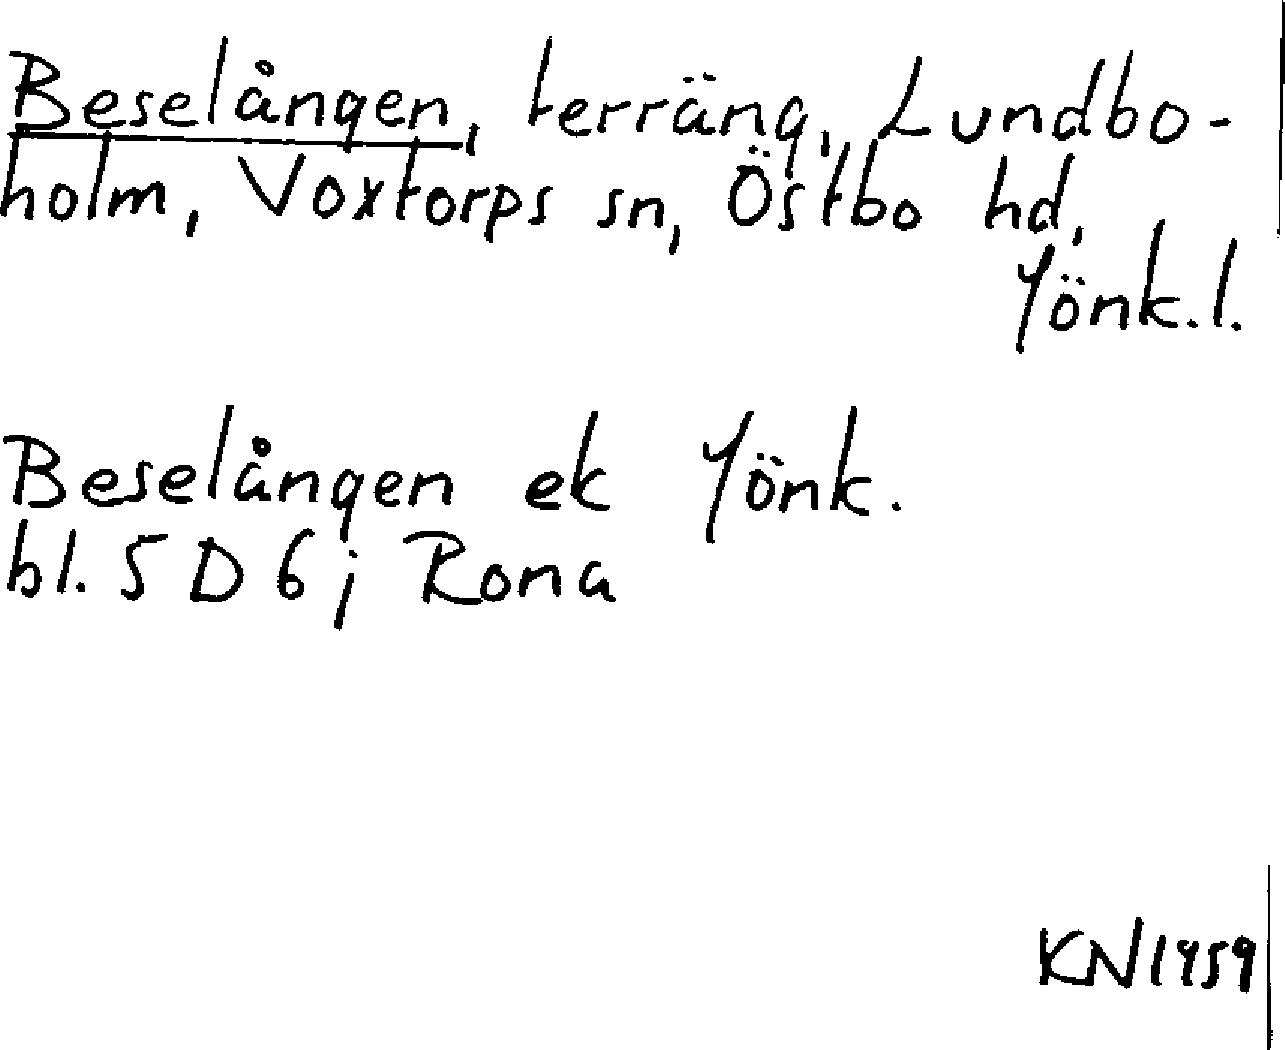 Beselången, terräng, Lundbo-
holm, Voxtorps sn, Östbo hd,
Jönk.l.
Beselången ek Jönk.
bl. 5 D 6 j Rona
KN 1959